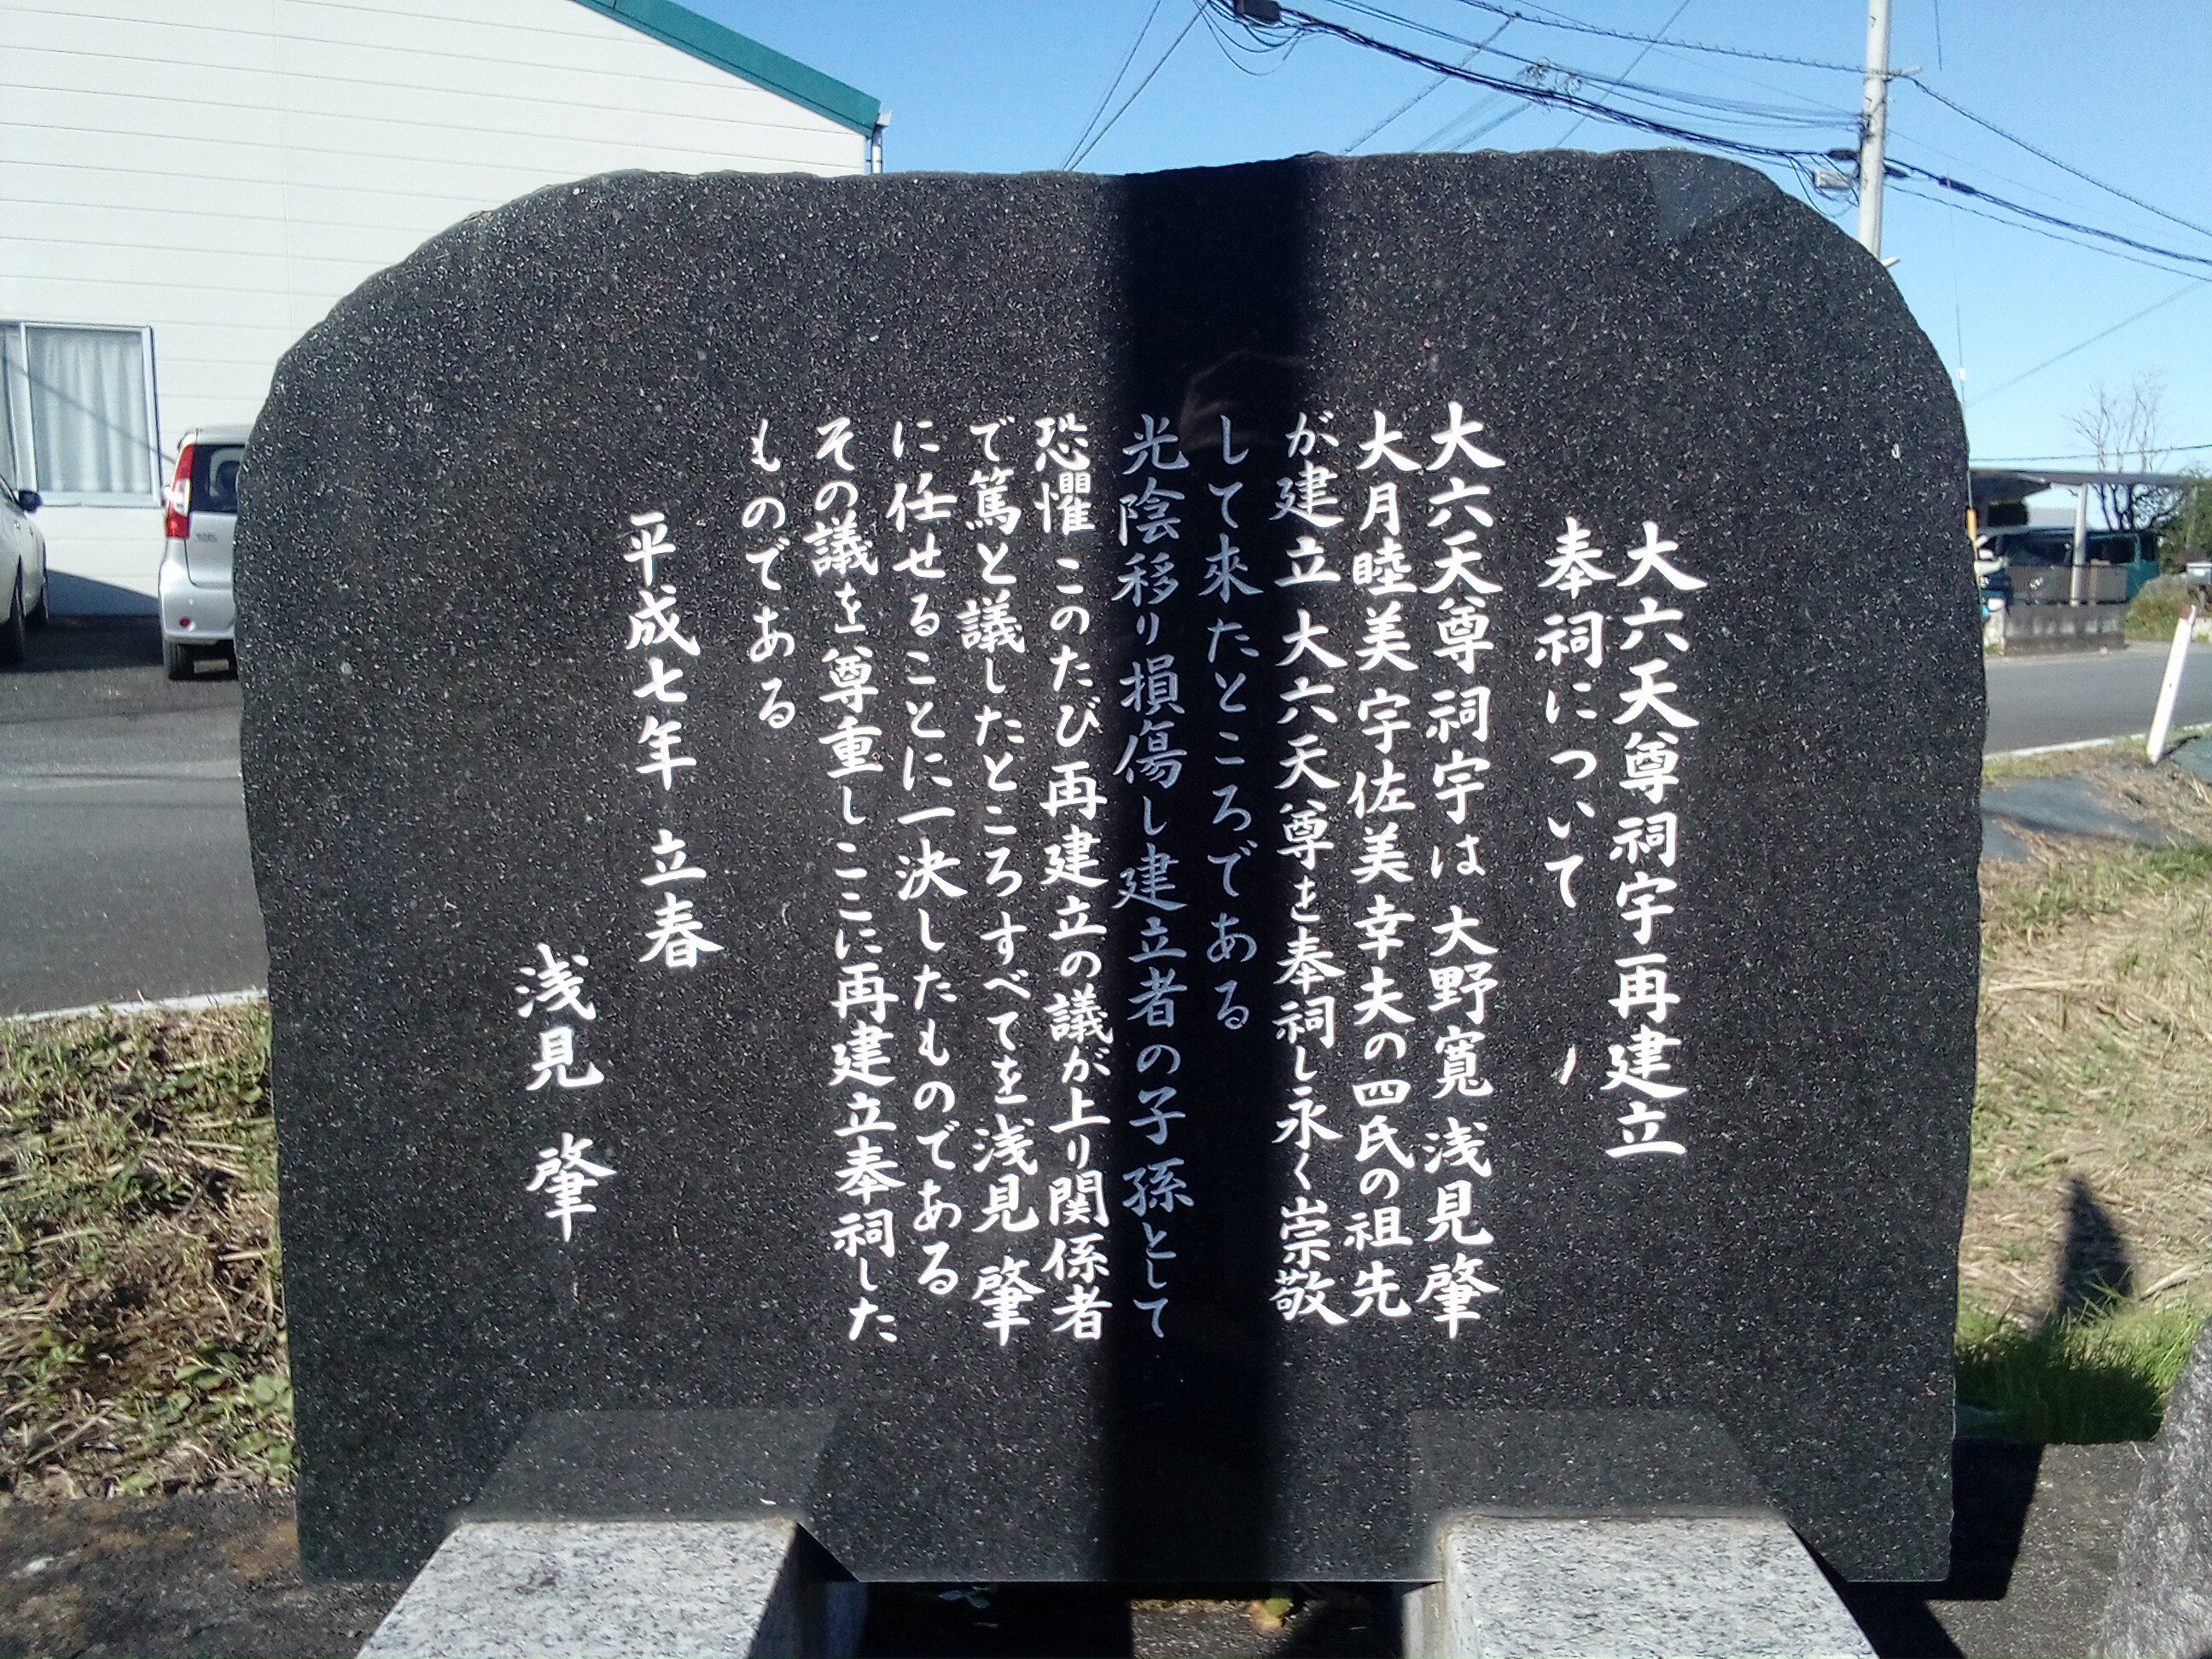 大六天尊祠宇再建立
奉祠について
大六天尊祠宇は 大野寛 浅見 肇
大月睦美 宇佐美幸夫の四氏の祖先
が建立 大六天尊を奉祠し永く崇敬
して來たところである
光陰移り損傷し建立者の子孫として
恐懼 このたび再建立の議が上り関係者
で篤と議したところすべてを浅見 肇
に任せることに一決したものである
その議を尊重しここに再建立奉祠した
ものである
平成七年 立春
浅見 肇